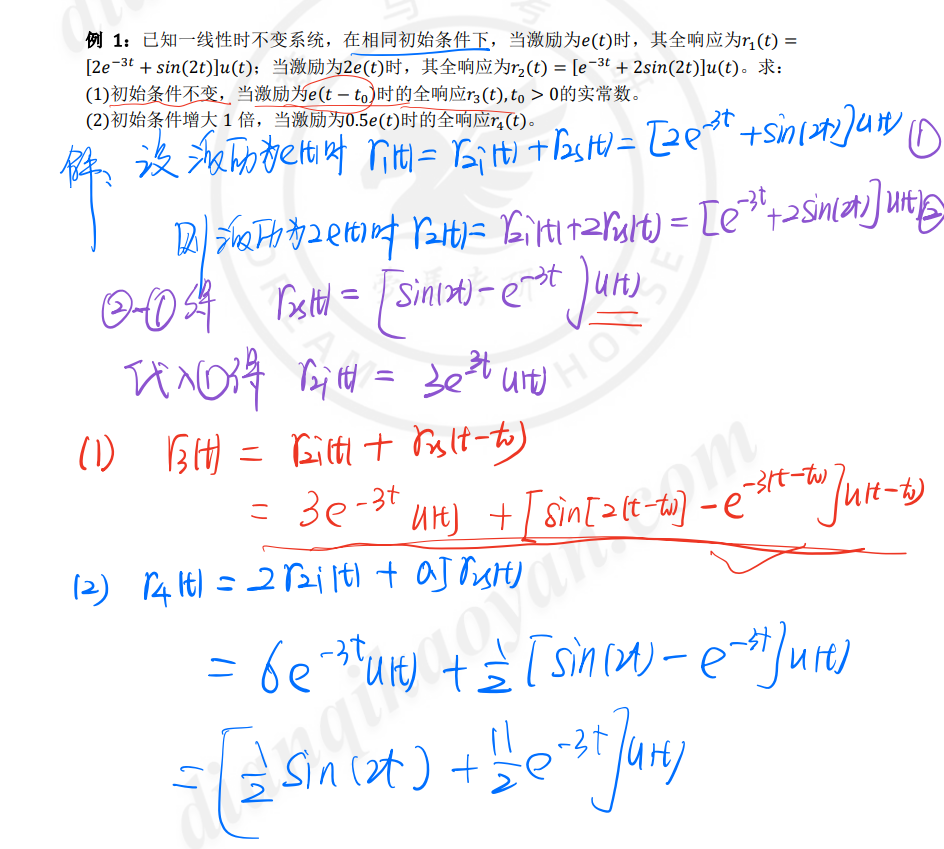 例 1：已知一线性时不变系统，在相同初始条件下，当激励为e(t)时，其全响应为r₁(t) =
[2e⁻³ᵗ + sin(2t)]u(t)；当激励为2e(t)时，其全响应为r₂(t) = [e⁻³ᵗ + 2sin(2t)]u(t)。求：
(1)初始条件不变，当激励为e(t − t₀)时的全响应r₃(t),t₀ > 0的实常数。
(2)初始条件增大 1 倍，当激励为0.5e(t)时的全响应r₄(t)。
解：设激励为e(t)时 r₁(t) = r_zi(t) + r_zs(t) = [2e⁻³ᵗ + sin(2t)]u(t) ①
则激励为2e(t)时 r₂(t) = r_zi(t) + 2r_zs(t) = [e⁻³ᵗ + 2sin(2t)]u(t) ②
②-①得 r_zs(t) = [sin(2t) − e⁻³ᵗ]u(t)
代入①得 r_zi(t) = 3e³ᵗ u(t)
(1) r₃(t) = r_zi(t) + r_zs(t−t₀)
= 3e⁻³ᵗ u(t) + [sin[2(t−t₀)] − e^(−3(t−t₀))]u(t−t₀)
(2) r₄(t) = 2r_zi(t) + 0.5r_zs(t)
= 6e⁻³ᵗu(t) + ½[sin(2t) − e⁻³ᵗ]u(t)
= [½sin(2t) + 11/2 e⁻³ᵗ]u(t)
dianqihaoyan.com
DREAM HORSE